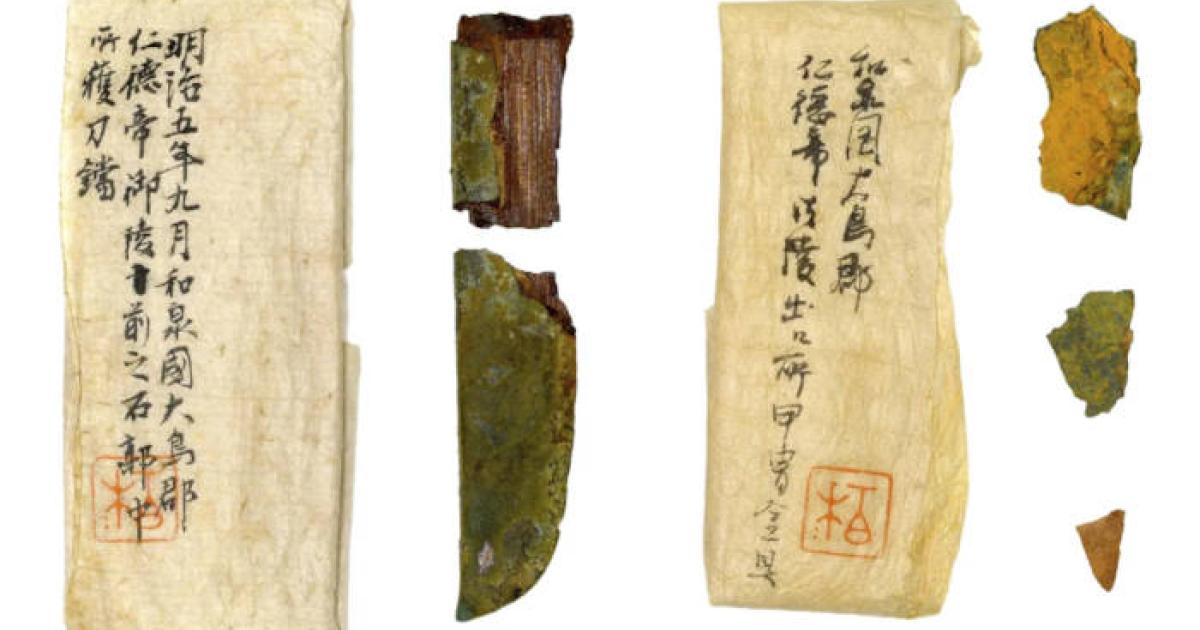 明治五年九月和泉國大鳥郡
仁德帝御陵前之石郭中
所獲刀鐺
柏
和泉国大鳥郡
仁徳帝御陵出口所甲冑金具
柏